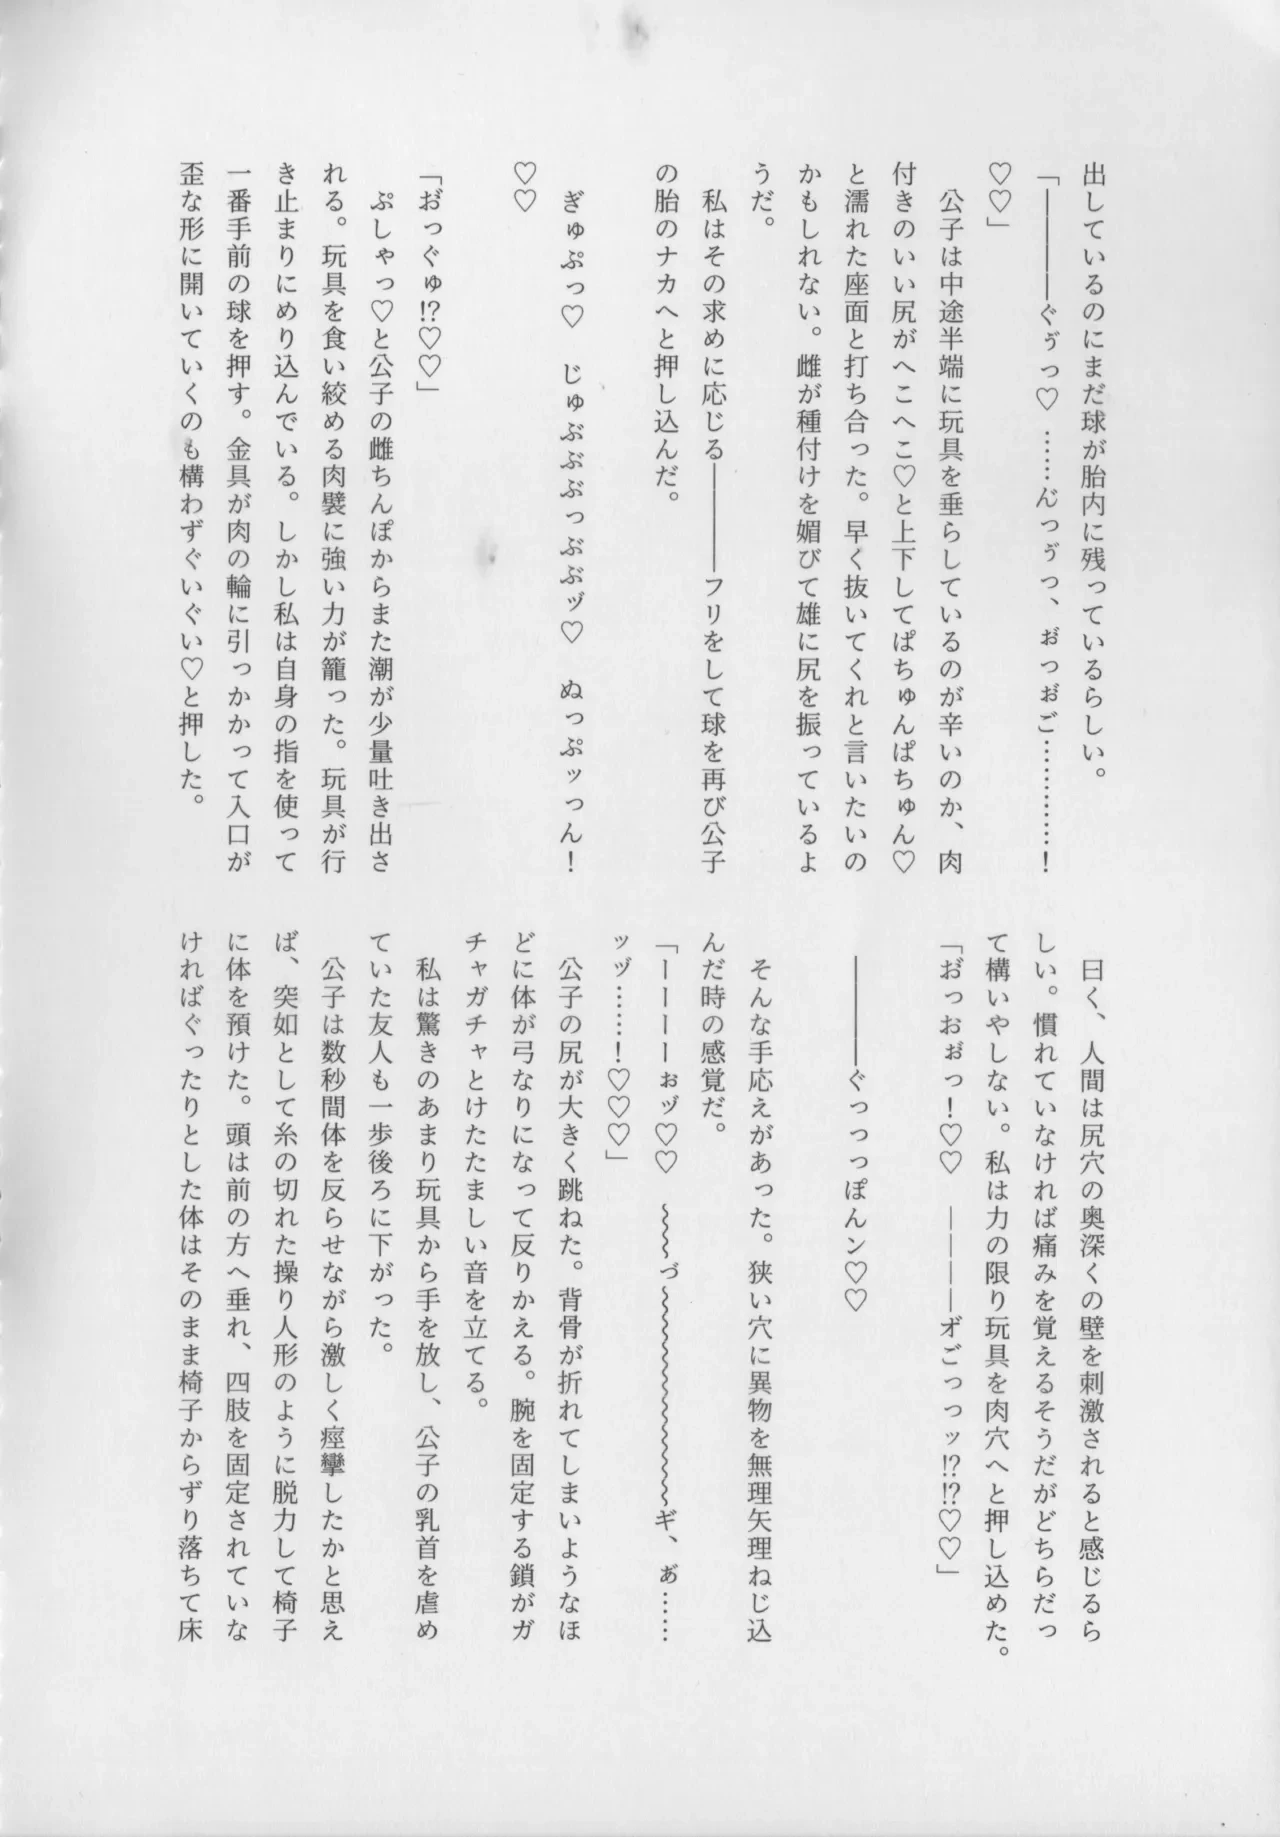 出しているのにまだ球が胎内に残っているらしい。
「――――ぐゔっ♡ ……ん゙っゔっ、お゙っお゙ご…………！
♡♡」
公子は中途半端に玩具を垂らしているのが辛いのか、肉
付きのいい尻がへこへこ♡と上下してぱちゅんぱちゅん♡
と濡れた座面と打ち合った。早く抜いてくれと言いたいの
かもしれない。雌が種付けを媚びて雄に尻を振っているよ
うだ。
私はその求めに応じる――――フリをして球を再び公子
の胎のナカへと押し込んだ。
ぎゅぷっ♡ じゅぶぶぶっぶぶッ♡ ぬっぷッっん！
♡♡
「お゙っぐゅ⁉♡♡」
ぷしゃっ♡と公子の雌ちんぽからまた潮が少量吐き出さ
れる。玩具を食い絞める肉襞に強い力が籠った。玩具が行
き止まりにめり込んでいる。しかし私は自身の指を使って
一番手前の球を押す。金具が肉の輪に引っかかって入口が
歪な形に開いていくのも構わずぐいぐい♡と押した。
曰く、人間は尻穴の奥深くの壁を刺激されると感じるら
しい。慣れていなければ痛みを覚えるそうだがどちらだっ
て構いやしない。私は力の限り玩具を肉穴へと押し込めた。
「お゙っおぉ゙っ！♡♡ ――――オ゙ごっっッ⁉⁉♡♡」
――――ぐっっっぽんン♡♡
そんな手応えがあった。狭い穴に異物を無理矢理ねじ込
んだ時の感覚だ。
「ーーーーぉッ゙♡♡ ～～～づ～～～～～～～～～ギ、あ゙……
ッッ゙……！♡♡♡」
公子の尻が大きく跳ねた。背骨が折れてしまいようなほ
どに体が弓なりになって反りかえる。腕を固定する鎖がガ
チャガチャとけたたましい音を立てる。
私は驚きのあまり玩具から手を放し、公子の乳首を虐め
ていた友人も一歩後ろに下がった。
公子は数秒間体を反らせながら激しく痙攣したかと思え
ば、突如として糸の切れた操り人形のように脱力して椅子
に体を預けた。頭は前の方へ垂れ、四肢を固定されていな
ければぐったりとした体はそのまま椅子からずり落ちて床